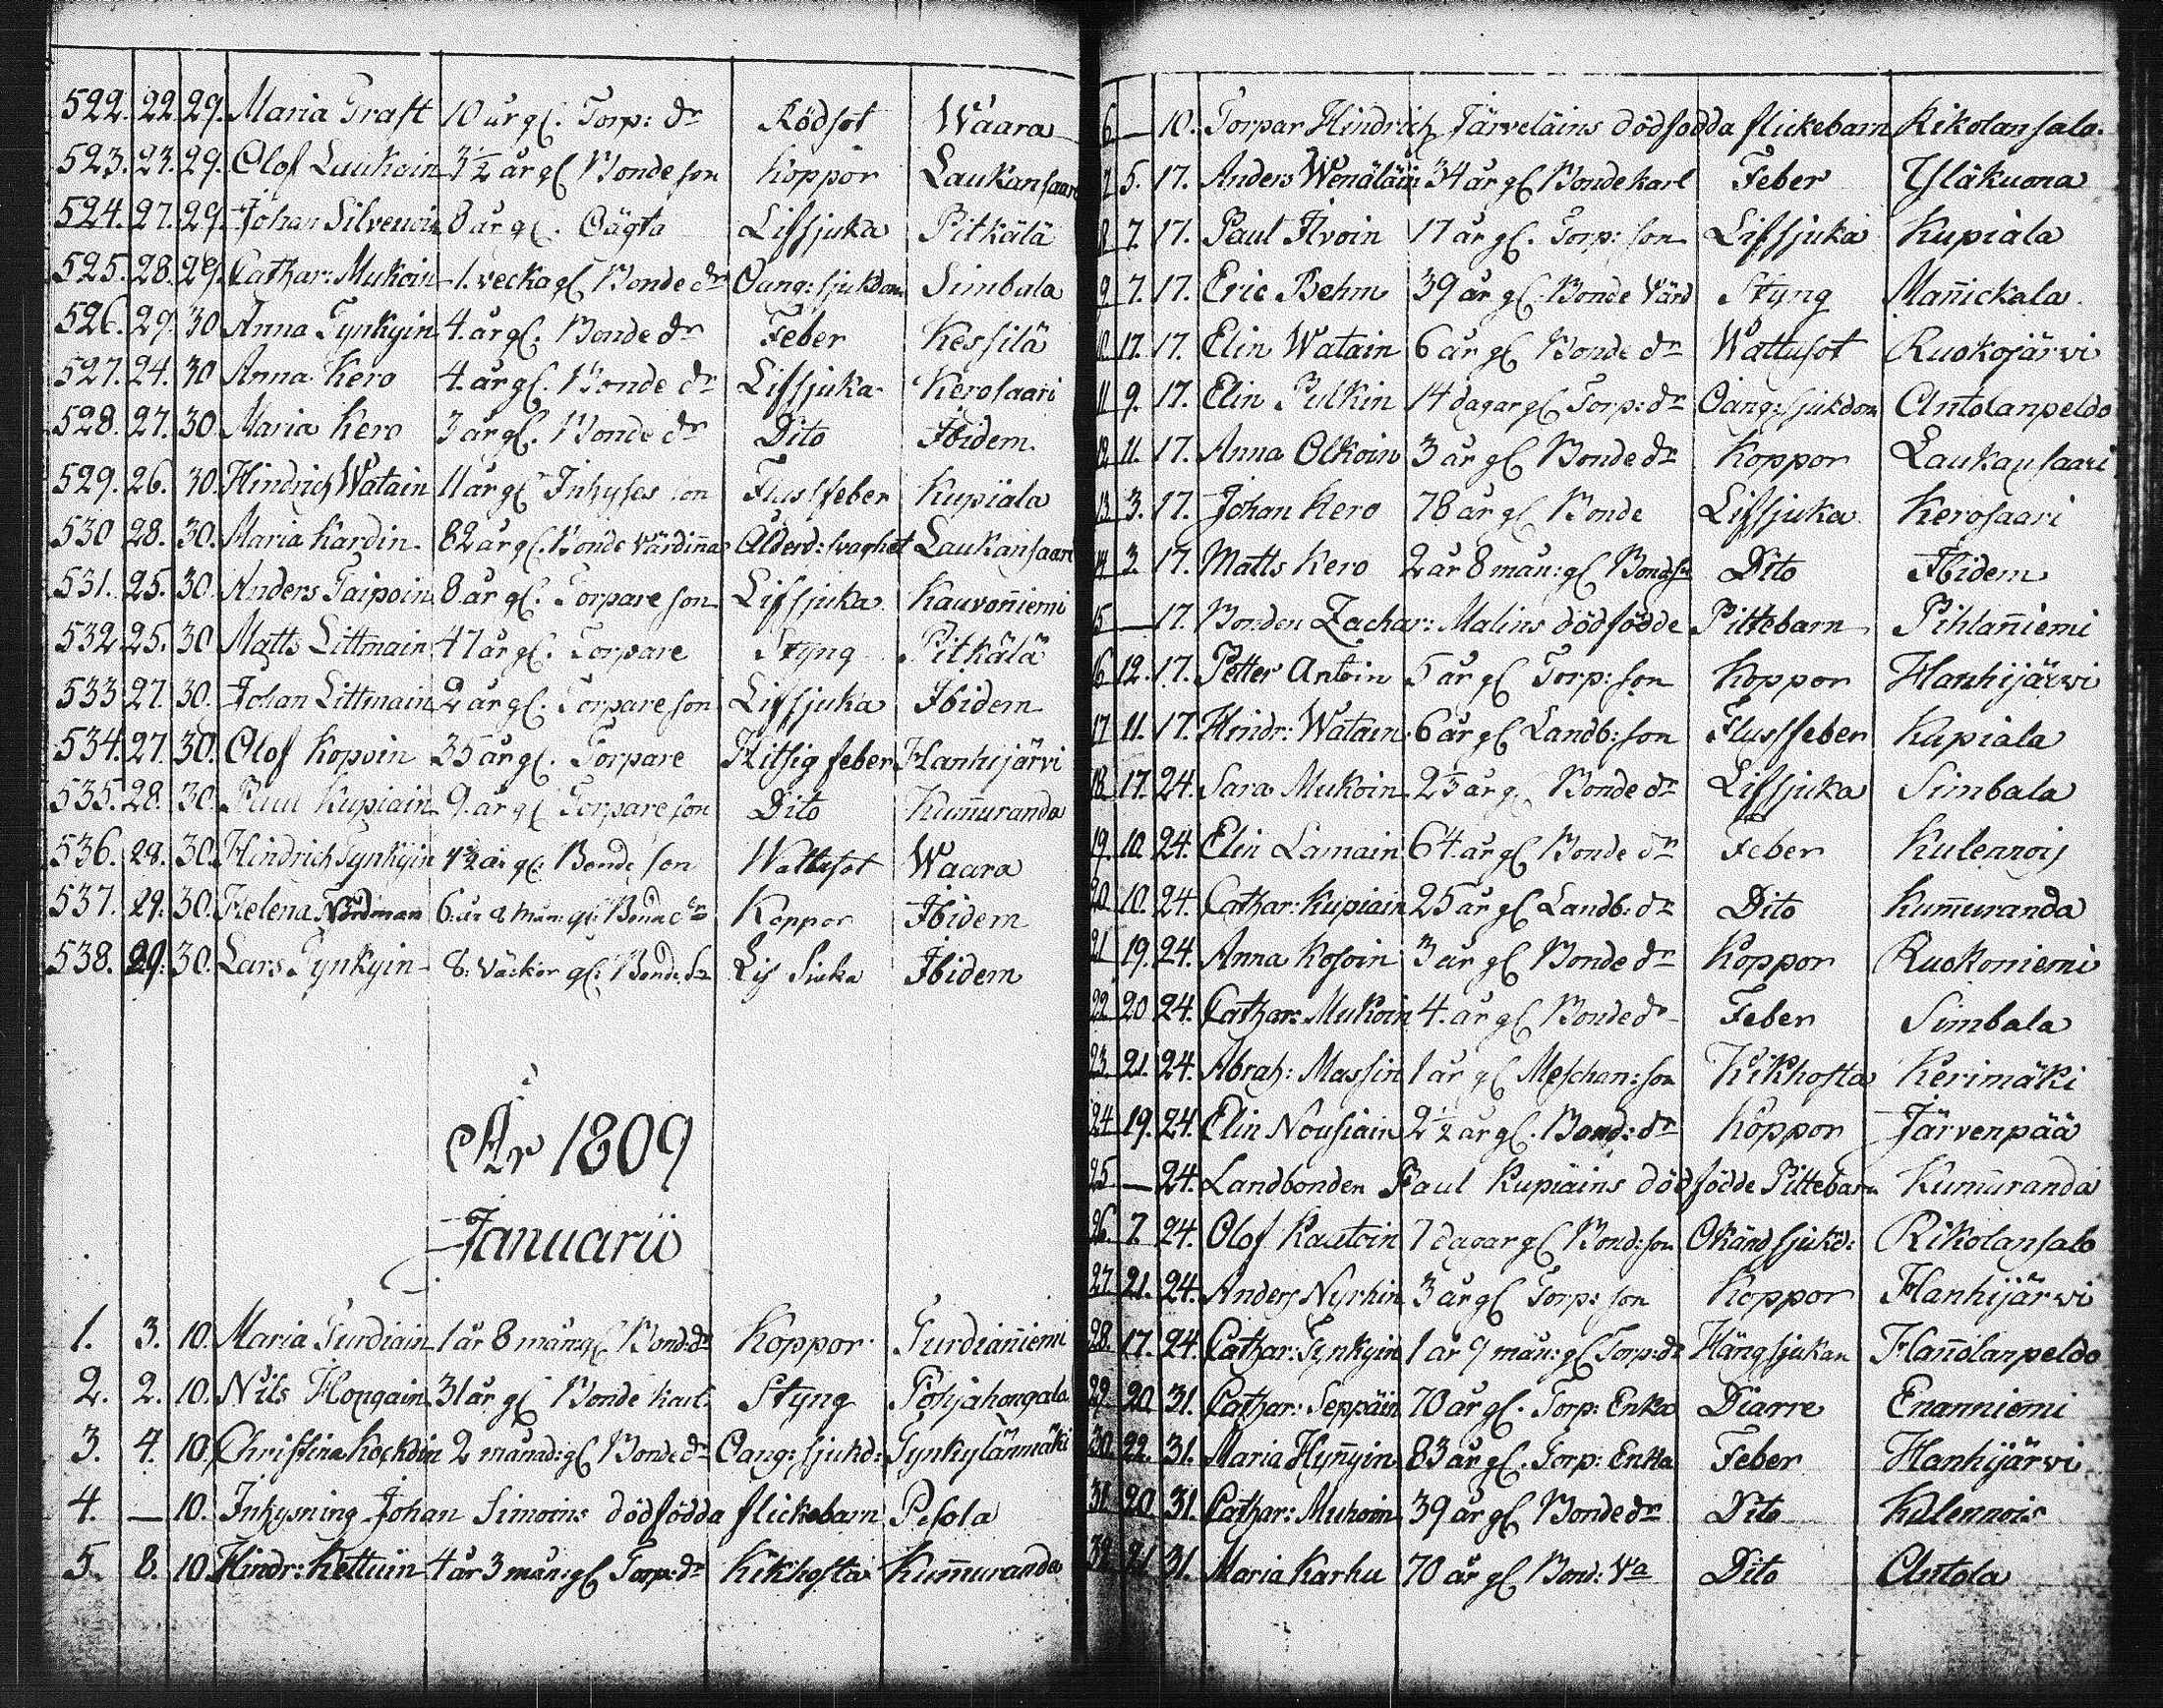 522. 22. 29. Maria Traft 10 år gl. Torp: dr Rödsot Waara
523. 23. 29. Olof Laukain 3½ år gl Bonde son Koppor Laukansaari
524. 27. 29. Johan Silvenoin 8 år gl. Oägta Lifsjuka Pitkälä
525. 28. 29. Cathar: Mukoin 1. vecka gl Bonde dr Oang: sjukdom Simbala
526. 29. 30 Anna Tynkyin 4. år gl. Bonde dr Feber Kessilä
527. 24. 30 Anna Kero 4. år gl. Bonde dr Lifsjuka Kerosaari
528. 27. 30 Maria Kero 3 år gl. Bonde dr Dito Ibidem
529. 26. 30. Hindrich Watain 11 år gl Inhyses son Flussfeber Kupiala
530 28. 30. Maria Kardin. 82 år gl. Bonde Värdiña Ålderd: svaghet Laukansaari
531. 25. 30. Anders Taipoin 8 år gl. Torpare son Lifsjuka Kauvoñiemi
532 25. 30 Matts Littmain 47 år gl. Torpare Styng Pitkälä
533 27. 30. Johan Littmain 2 år gl. Torpare son Lifsjuka Ibidem
534. 27. 30. Olof Kopoin 35 år gl. Torpare Hitsig feber Hanhijärvi
535. 28. 30. Paul Kupiain 9. år gl Torpare son Dito Kum̄uranda
536. 29. 30. Hindrich Tynkyin år gl: Bonde son Wattusot Waara
537. 29. 30. Helena Nordman 6. år 8 mån: gl: Bonde dr Koppor Ibidem
538. 29. 30. Lars Tynkyin 8: väckor gl: Bonde Sn Lif Siuka Ibidem
År 1809
Januarii
1. 3. 10. Maria Turdiain 1 år 8 mån gl Bond: dr Koppor Turdiañiemi
2. 2. 10. Nils Hongain 31 år gl Bonde karl Styng Pohjahongala
3. 4. 10. Christina Kockoin 2 månad: gl Bonde dr Oang: sjukd: Tynkylänmäki
4. — 10. Inhysning Johan Simoins dödfödda flickebarn Pesola
5. 8. 10 Hindr: Kettuin 4 år 3 mån: gl Torp: dr Kikhosta Kum̄uranda
6 — 10. Torpar Hindrich Järveläins dödfodda flickebarn Rikolansalo.
7 5. 17. Anders Wenäläin 34 år gl Bonde karl Feber Yläkuona
8 7. 17. Paul Ilvoin 17 år gl. Torp: son Lifsjuka Kupiala
9 7. 17. Eric Behm 39 år gl. Bonde Värd Styng Mañickala
10. 17. 17. Elin Watain 6 år gl Bonde dr Wattusot Ruokojärvi
11 9. 17. Elin Pulkin 14 dagar gl Torp: dr Oang: sjukdom Antolanpeldo
12 11. 17. Anna Olkoin 3 år gl Bonde dr Koppor Laukansaari
13. 3. 17. Johan Kero 78 år gl Bonde Lifsjuka Kerosaari
14. 3. 17. Matts Kero 2 år 8 mån: gl Bonde sn Dito Ibidem
15 — 17. Bonden Zachar: Malins dödfödde Piltebarn Pihlañiemi
16 12. 17. Petter Antoin 5 år gl Torp: son Koppor Hanhijärvi
17 11. 17. Hindr: Watain 6 år gl Landb: son Flussfeber Kupiala
18. 17. 24. Sara Mukoin 2 år gl Bonde dr Lifsjuka Simbala
19. 10. 24. Elin Lamain 64. år gl Bonde dr Feber Kulennoij
20. 10. 24. Cathar: Kupiain 25 år gl Landb: dr Dito Kum̄uranda
21 19. 24. Anna Kosoin 3 år gl Bonde dr Koppor Ruokoniemi
22. 20 24. Cathar: Mukoin 4. år gl Bonde dr Feber Simbala
23. 21. 24. Abrah: Massin 1 år gl Meschan: son Kikhosta Kerimäki
24 19. 24. Elin Nousiain 2½ år gl. Bond: dr Koppor Järvenpää
25 — 24. Landbonden Paul Kupiains dödfödde Piltebarn Kum̄uranda
26. 7. 24. Olof Kautoin 7 dagar gl Bond: son Okänd sjukd: Rikolansalo
27. 21. 24. Anders Nyrhin 3 år gl Torp: son Koppor Hanhijärvi
28. 17. 24. Cathar: Tynkyin 1 år 9 mån: gl Torp: dr Hängsjukan Hañolanpeldo
29. 20. 31. Cathar: Seppäin 70 år gl. Torp: Enka Diarre Enanniemi
30. 22. 31. Maria Hyñyin 83 år gl. Torp: Enka Feber Hanhijärvi
31. 20. 31. Cathar: Muhoin 39 år gl Bonde dr Dito Kulennois
32. 21 31. Maria Karhu 70 år gl Bond: Va Dito Antola